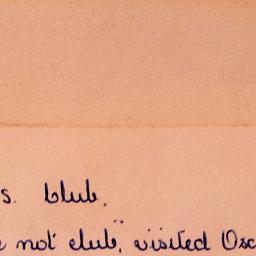 s. Club.
not club, visited Osc